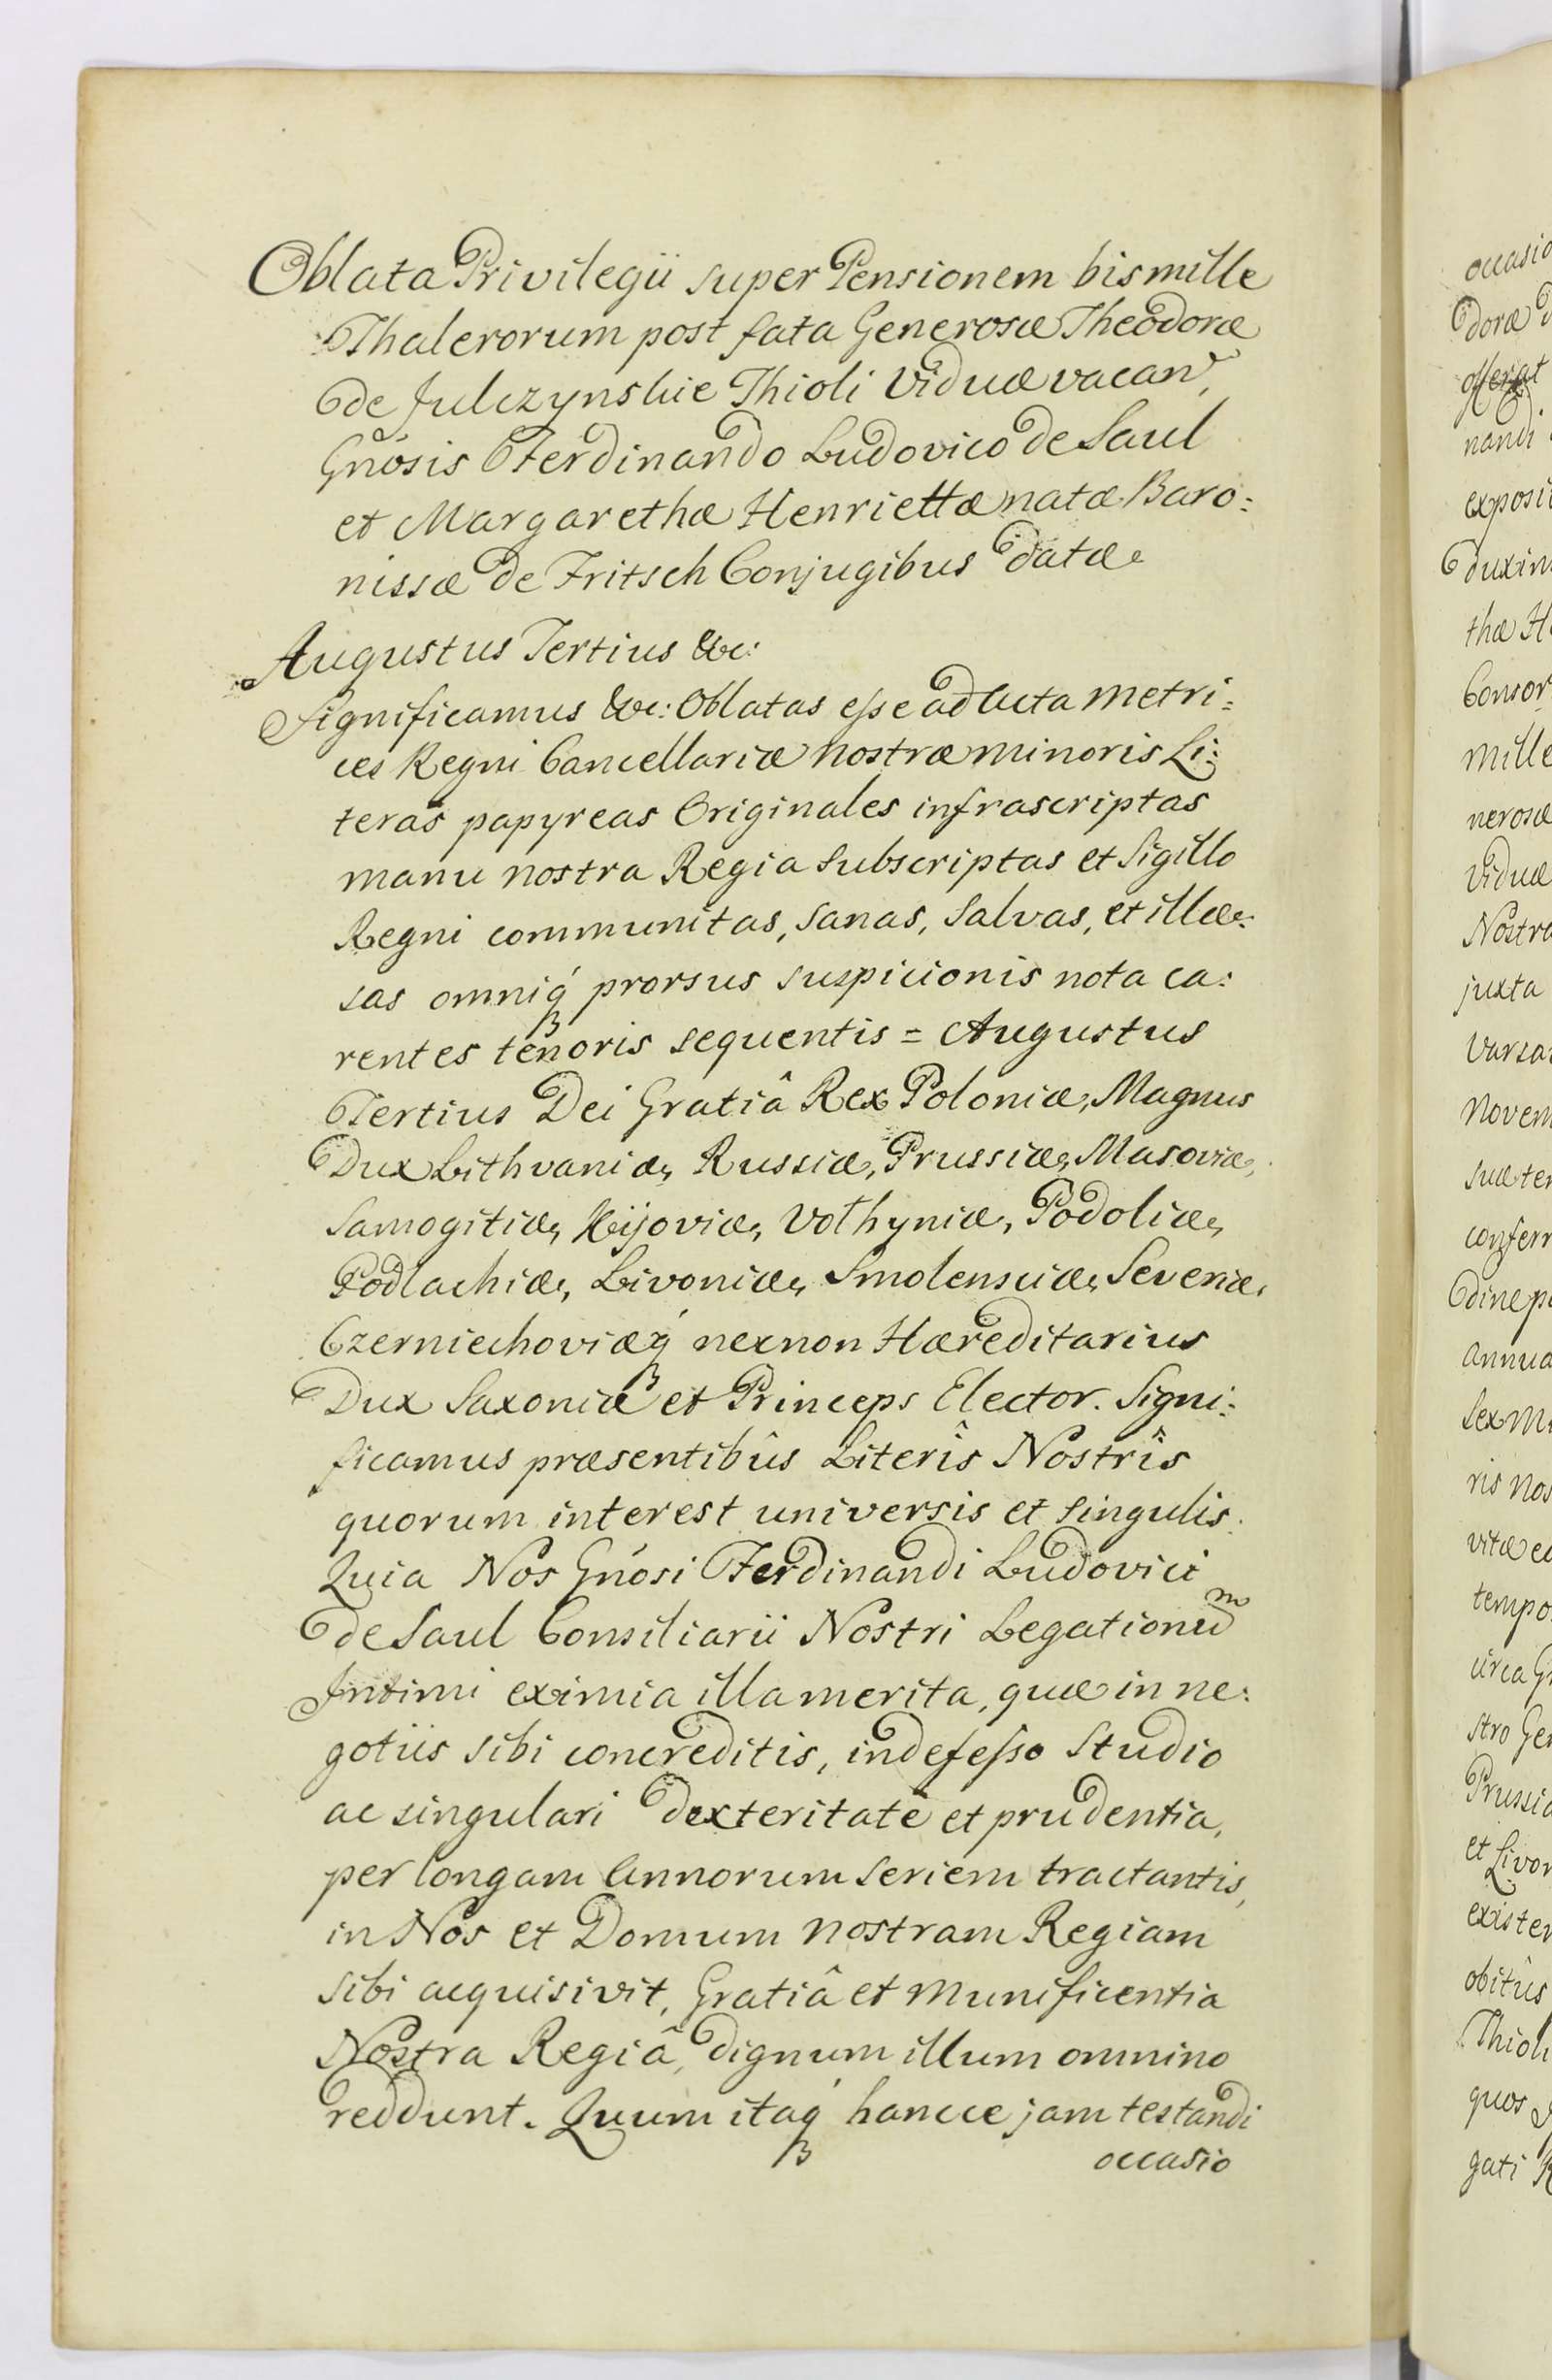 Oblata Privilegii super Pensionem bismille
Thalerorum post fata Generosæ Theodoræ
de Julczynskie Thioli Viduæ vacan̄,
Gnósis Ferdinando Ludovico de Saul
et Margarethæ Henriettæ natæ Baro:
nissæ de Fritsch Conjugibus datæ
Augustus Tertius &c:
Significamus &c: Oblatas esse ad Acta Metri:
ces Regni Cancellariæ nostræ minoris Li:
teras papyreas Originales infrascriptas
manu nostra Regia subscriptas et Sigillo
Regni communitas, sanas, salvas, et illæ:
sas omniq́ prorsus suspicionis nota ca:
rentes tenoris sequentis = Augustus
Tertius Dei Gratiâ Rex Poloniæ, Magnus
Dux Lithvaniæ, Russiæ, Prussiæ, Masoviæ,
Samogitiæ, Kijoviæ, Volhyniæ, Podoliæ,
Podlachiæ, Livoniæ, Smolensciæ, Severiæ,
Czerniechoviæq́ necnon Hæreditarius
Dux Saxoniæ et Princeps Elector. Signi:
ficamus præsentibûs Literîs Nostrîs
quorum interest universis et singulis.
Quia Nos Gnósi Ferdinandi Ludovici
de Saul Consiliarii Nostri Legationum
Intimi eximia illa merita, quæ in ne:
gotiis sibi concreditis, indefesso studio
ac singulari dexteritate et prudentia,
per longam Annorum seriem tractantis,
in Nos et Domum nostram Regiam
sibi acquisivit, Gratiâ et Munificentia
Nostra Regiâ, dignum illum omnino
reddunt. Quum itaq́ hancce jam testandi
occasio